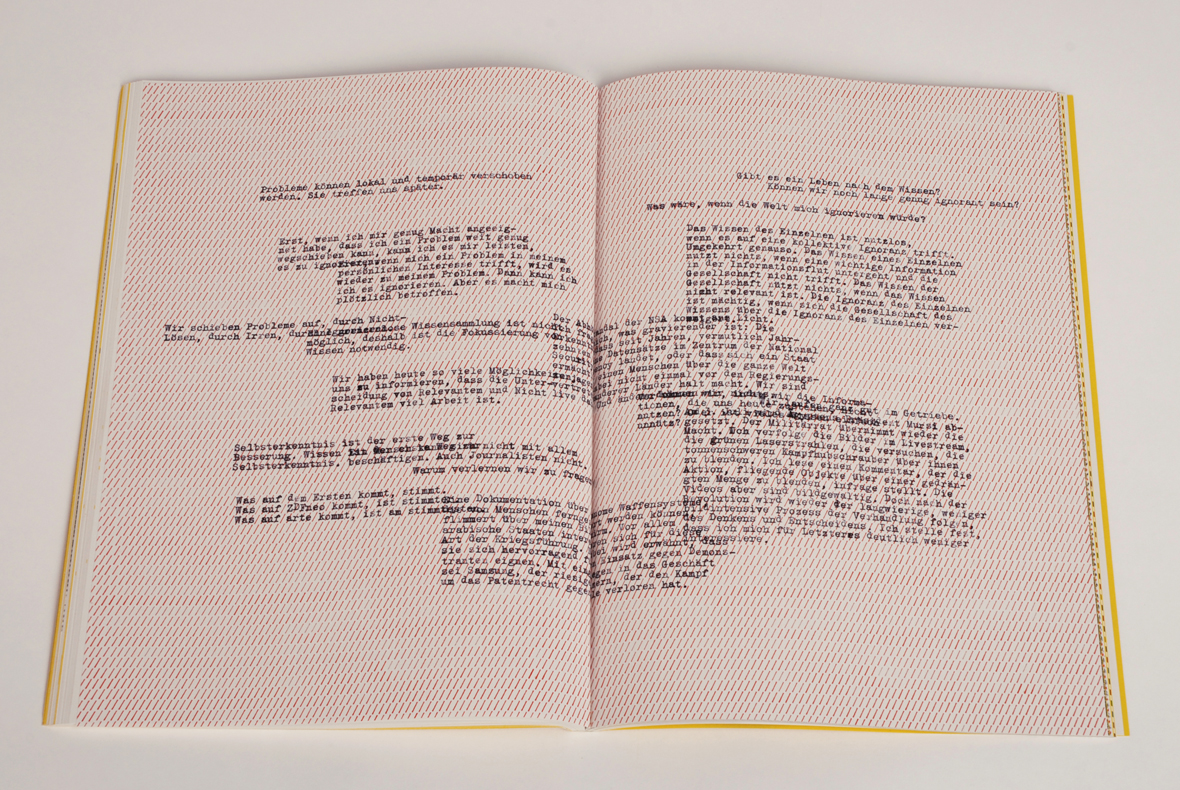 Probleme können lokal und temporär verschoben
werden. Sie treffen uns später.
Erst, wenn ich mir genug Macht angeeig-
net habe, dass ich ein Problem weit genug
wegschieben kann, kann ich es mir leisten,
es zu wenn mich ein Problem in meinem
persönlichen Interesse trifft, wird es
wieder zu meinem Problem. Dann kann ich
es ignorieren. Aber es macht mich
plötzlich betroffen.
Wir schieben Probleme auf, durch Nicht-
Lösen, durch Irren, Wissensammlung ist nicht
möglich, deshalb ist die Fokussierung von
Wissen notwendig.
Wir haben heute so viele Möglichkeiten
uns zu informieren, dass die Unter-
scheidung von Relevantem und Nicht
Relevantem viel Arbeit ist.
Selbsterkenntnis ist der erste Weg zur
Besserung. Wissen nicht mit allem
Selbsterkenntnis. beschäftigen. Auch Journalisten nicht.
Warum verlernen wir zu fragen
Was auf dem Ersten kommt, stimmt.
Was auf ZDFneo kommt, ist
Was auf arte kommt, ist am
Eine Dokumentation über
Menschen
flimmert über meinen
arabische Staaten
Art der Kriegsführung.
sie sich hervorragend
tranten eignen. Mit
sei Samsung, der
um das Patentrecht
Gibt es ein Leben nach dem Wissen?
Können wir noch lange genug ignorant sein?
Was wäre, wenn die Welt mich ignorieren würde?
Das Wissen des Einzelnen ist nutzlos,
wenn es auf eine kollektive Ignoranz trifft.
Umgekehrt genauso. Das Wissen eines Einzelnen
nutzt nichts, wenn eine wichtige Information
in der Informationsflut untergeht und die
Gesellschaft nicht trifft. Das Wissen der
Gesellschaft nützt nichts, wenn das Wissen
nicht relevant ist. Die Ignoranz des Einzelnen
ist mächtig, wenn sich die Gesellschaft des
Wissens über die Ignoranz des Einzelnen ver-
der NSA Licht.
was gravierender ist: Die
seit Jahren, vermutlich Jahr-
Datensätze im Zentrum der National
landet, oder dass sich ein Staat
Menschen über die ganze Welt
nicht einmal vor den Regierungs-
Länder halt macht. Wir sind
wir die Informa-
tionen, die uns heute gut im Getriebe.
nutzen? Mursi ab-
unnütz? gesetzt. Der Militärrat übernimmt wieder die
Macht. Ich verfolge die Bilder im Livestream,
die grünen Laserstrahlen, die versuchen, die
tonnenschweren Kampfhubschrauber über ihnen
zu blenden. Ich lese einen Kommentar, der die
Aktion, fliegende Objekte über einer gedrän-
gten Menge zu blenden, infrage stellt. Die
Videos aber sind bildgewaltig. Doch nach der
Revolution wird wieder der langwierige, weniger
bildintensive Prozess der Verhandlung folgen,
des Denkens und Entscheidens. Ich stelle fest,
dass ich mich für Letzteres deutlich weniger
interessiere.
Waffensysteme
werden können,
Vor allem
sich für diese
wird erwähnt, dass
Einsatz gegen Demons-
in das Geschäft
der den Kampf
verloren hat.